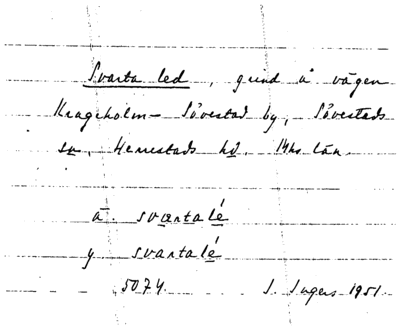 Svarta led, grind å vägen
Krageholm – Sövestad by, Sövestads
sn. Herrestads hd. Mhs län.
ä. sværtalé
y svartalé
5074. S. Ingers 1951.